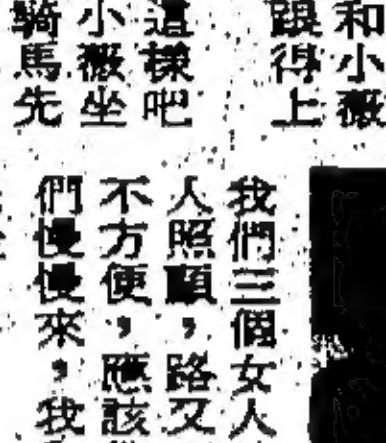 和小薇
跟得上
這樣吧
小薇坐
騎馬先
我們三個女人
人照顧，路又
不方便，應該
們慢慢來，我